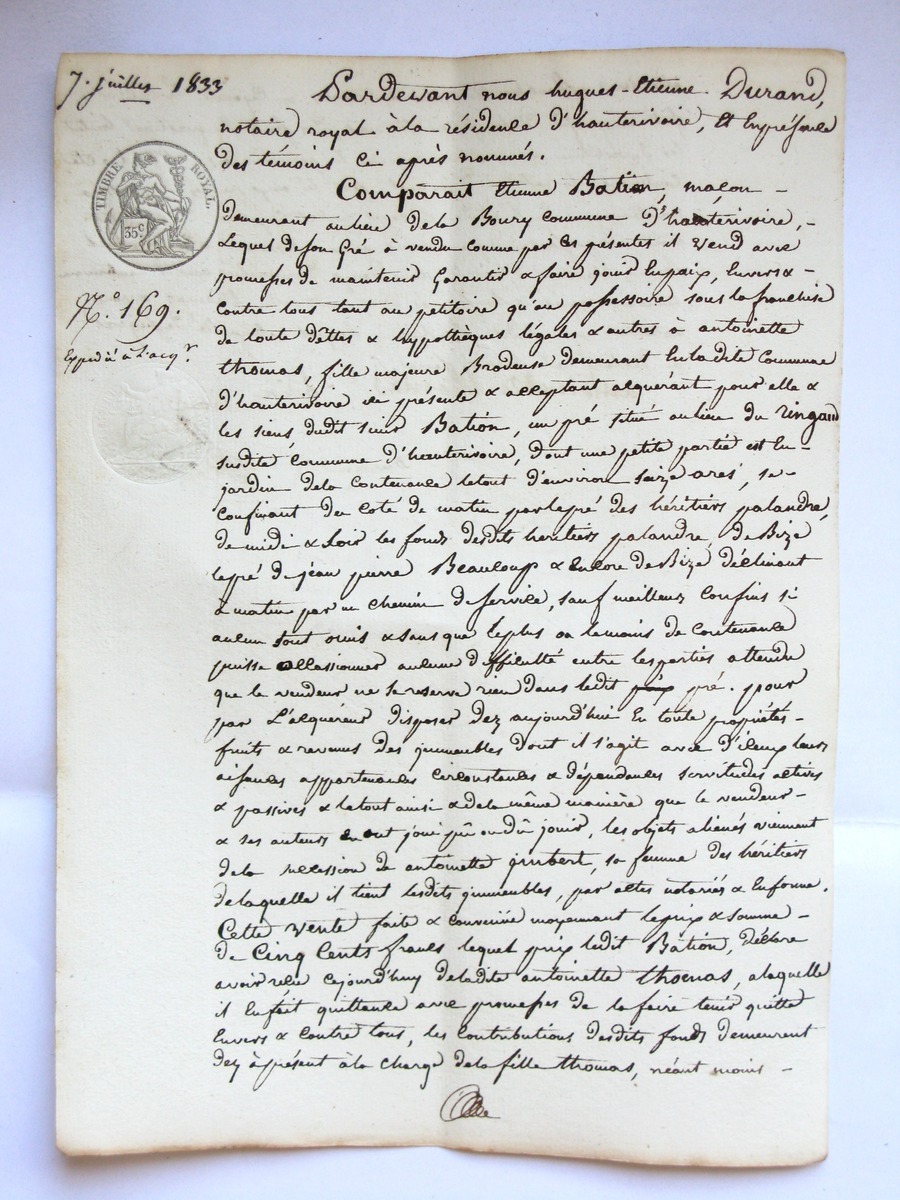 7. juillet 1833
TIMBRE ROYAL.
35 c
N.° 169.
Expedié à l'acq.r
Pardevant nous hugues-Etienne Durand,
notaire royal à la résidence d'hauterivoire, et En présence
des témoins Ci après nommés.
Comparait Etienne Bation, maçon -
demeurant au lieu de la Boury Commune D'hauterivoire, -
Lequel de son Gré à vendu comme par Ces présentes il vend avec
promesses de maintenir Garantir & faire jouir En paix, Envers & -
Contre tous tant au petitoire qu'au possessoire sous la franchise
de toute dettes & hypothèques légales & autres à antoinette
thomas, fille majeure Brodeuse demeurant En la dite Commune
d'hauterivoire ici présente & acceptant acquérant pour elle &
les siens, dudit sieur Bation, un pré situé au lieu du Zingaud
susdite Commune d'hauterivoire, dont une petite partie est En -
jardin de la Contenance le tout d'environ seize ares, se -
Confinant du Coté de matin par le pré des héritiers palandre,
de midi & soir les fonds desdits héritiers palandre, de Bize
le pré de jean pierre Beaucoup & Encore de Bize déclinant
à matin par un chemin de service, sauf meilleurs Confins si
aucun sont omis & sans que le plus ou le moins de Contenance
puisse occassionner aucune difficulté entre les parties attendu
que le vendeur ne se reserve rien dans ledit pré. pour
par L'acquéreur disposer dez aujourd'hui En toute propriétés -
fruits & revenus des immeubles dont il s'agit avec d'iceux leurs
aisances appartenances Circonstances & dépendances servitudes actives
& passives & le tout ainsi & de la même manière que le vendeur -
& ses auteurs En ont joui pû ou dû jouir, les objets aliénés viennent
de la succession de antoinette jmbert, sa femme des héritiers
de laquelle il tient lesdits immeubles, par actes notariés & En forme.
Cette vente faite & convenue moyennant le prix & somme -
de Cinq Cents francs lequel prix ledit Bation, déclare
avoir reçu Cejourd'huy de ladite antoinette thomas, à laquelle
il En fait quittance avec promesses de la faire tenir quitte
Envers & contre tous, les Contributions desdits fonds demeurent
dez à présent à la charge de la fille thomas, néant moins -